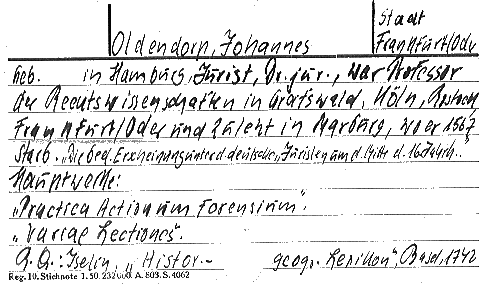 Stadt
Oldendorp, Johannes Frankfurt/Oder
Geb. in Hamburg, Jurist, Dr. jur., war Professor
der Rechtswissenschaften in Greifswald, Köln, Rostock
Frankfurt/Oder und zuletzt in Marburg, wo er 1567
starb. „Die bed. Erscheinung unter d. deutschen Juristen um d. Mitte d. 16. Jahrh."
Hauptwerke:
„Practica Actionum Forensium".
„Variae Lectiones".
A.Q.: Iselin, „Histor.- geogr. Lexikon", Basel, 1742
Reg. 10. Stichnote 1. 50. 232000. A. 803. S. 4062